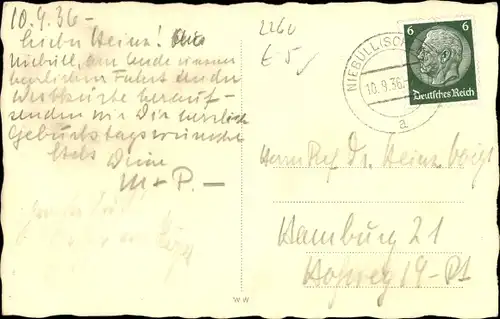 10.9.36 –
Lieber Heinz! Aus
Niebüll, am Ende einer
herrlichen Fahrt an der
Westküste herauf-
senden wir Dir herzlich
Geburtstagswünsche
Stets Deine
M + P. –
2260
€ 5
NIEBÜLL
10.9.36
a
6 6
Deutsches Reich
Herrn Ref. Dr. Heinz Voigt
Hamburg 21
Hofweg 19 - Pt
WW